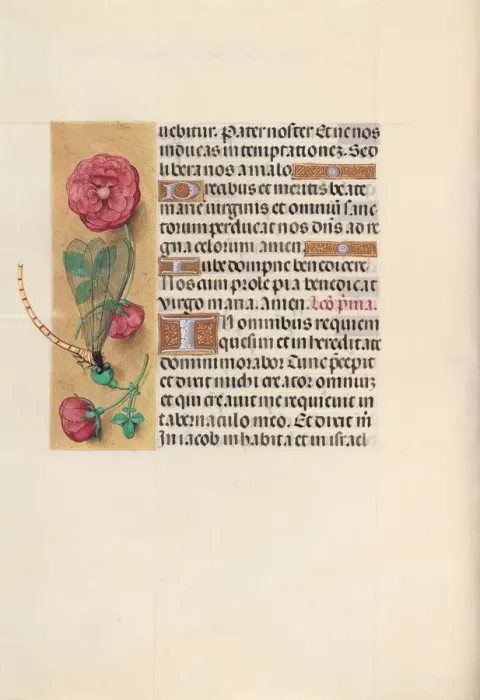 uebitur. Pater noster Et ne nos
inducas in temptationez. Sed
libera nos a malo.
Precibus et meritis beate
marie virginis et omniu sanc
torum perducat nos dns ad re
gna celorum amen.
Jube dompne benedicere.
Nos cum prole pia benedicat
virgo maria. Amen. leco pma.
In omnibus requiem
quesim et in hereditate
domini morabor Tunc pcepit
et dixit michi creator omniuz
et qui creauit me requieuit in
tabernaculo meo. Et dixit m
In iacob inhabita et in israel